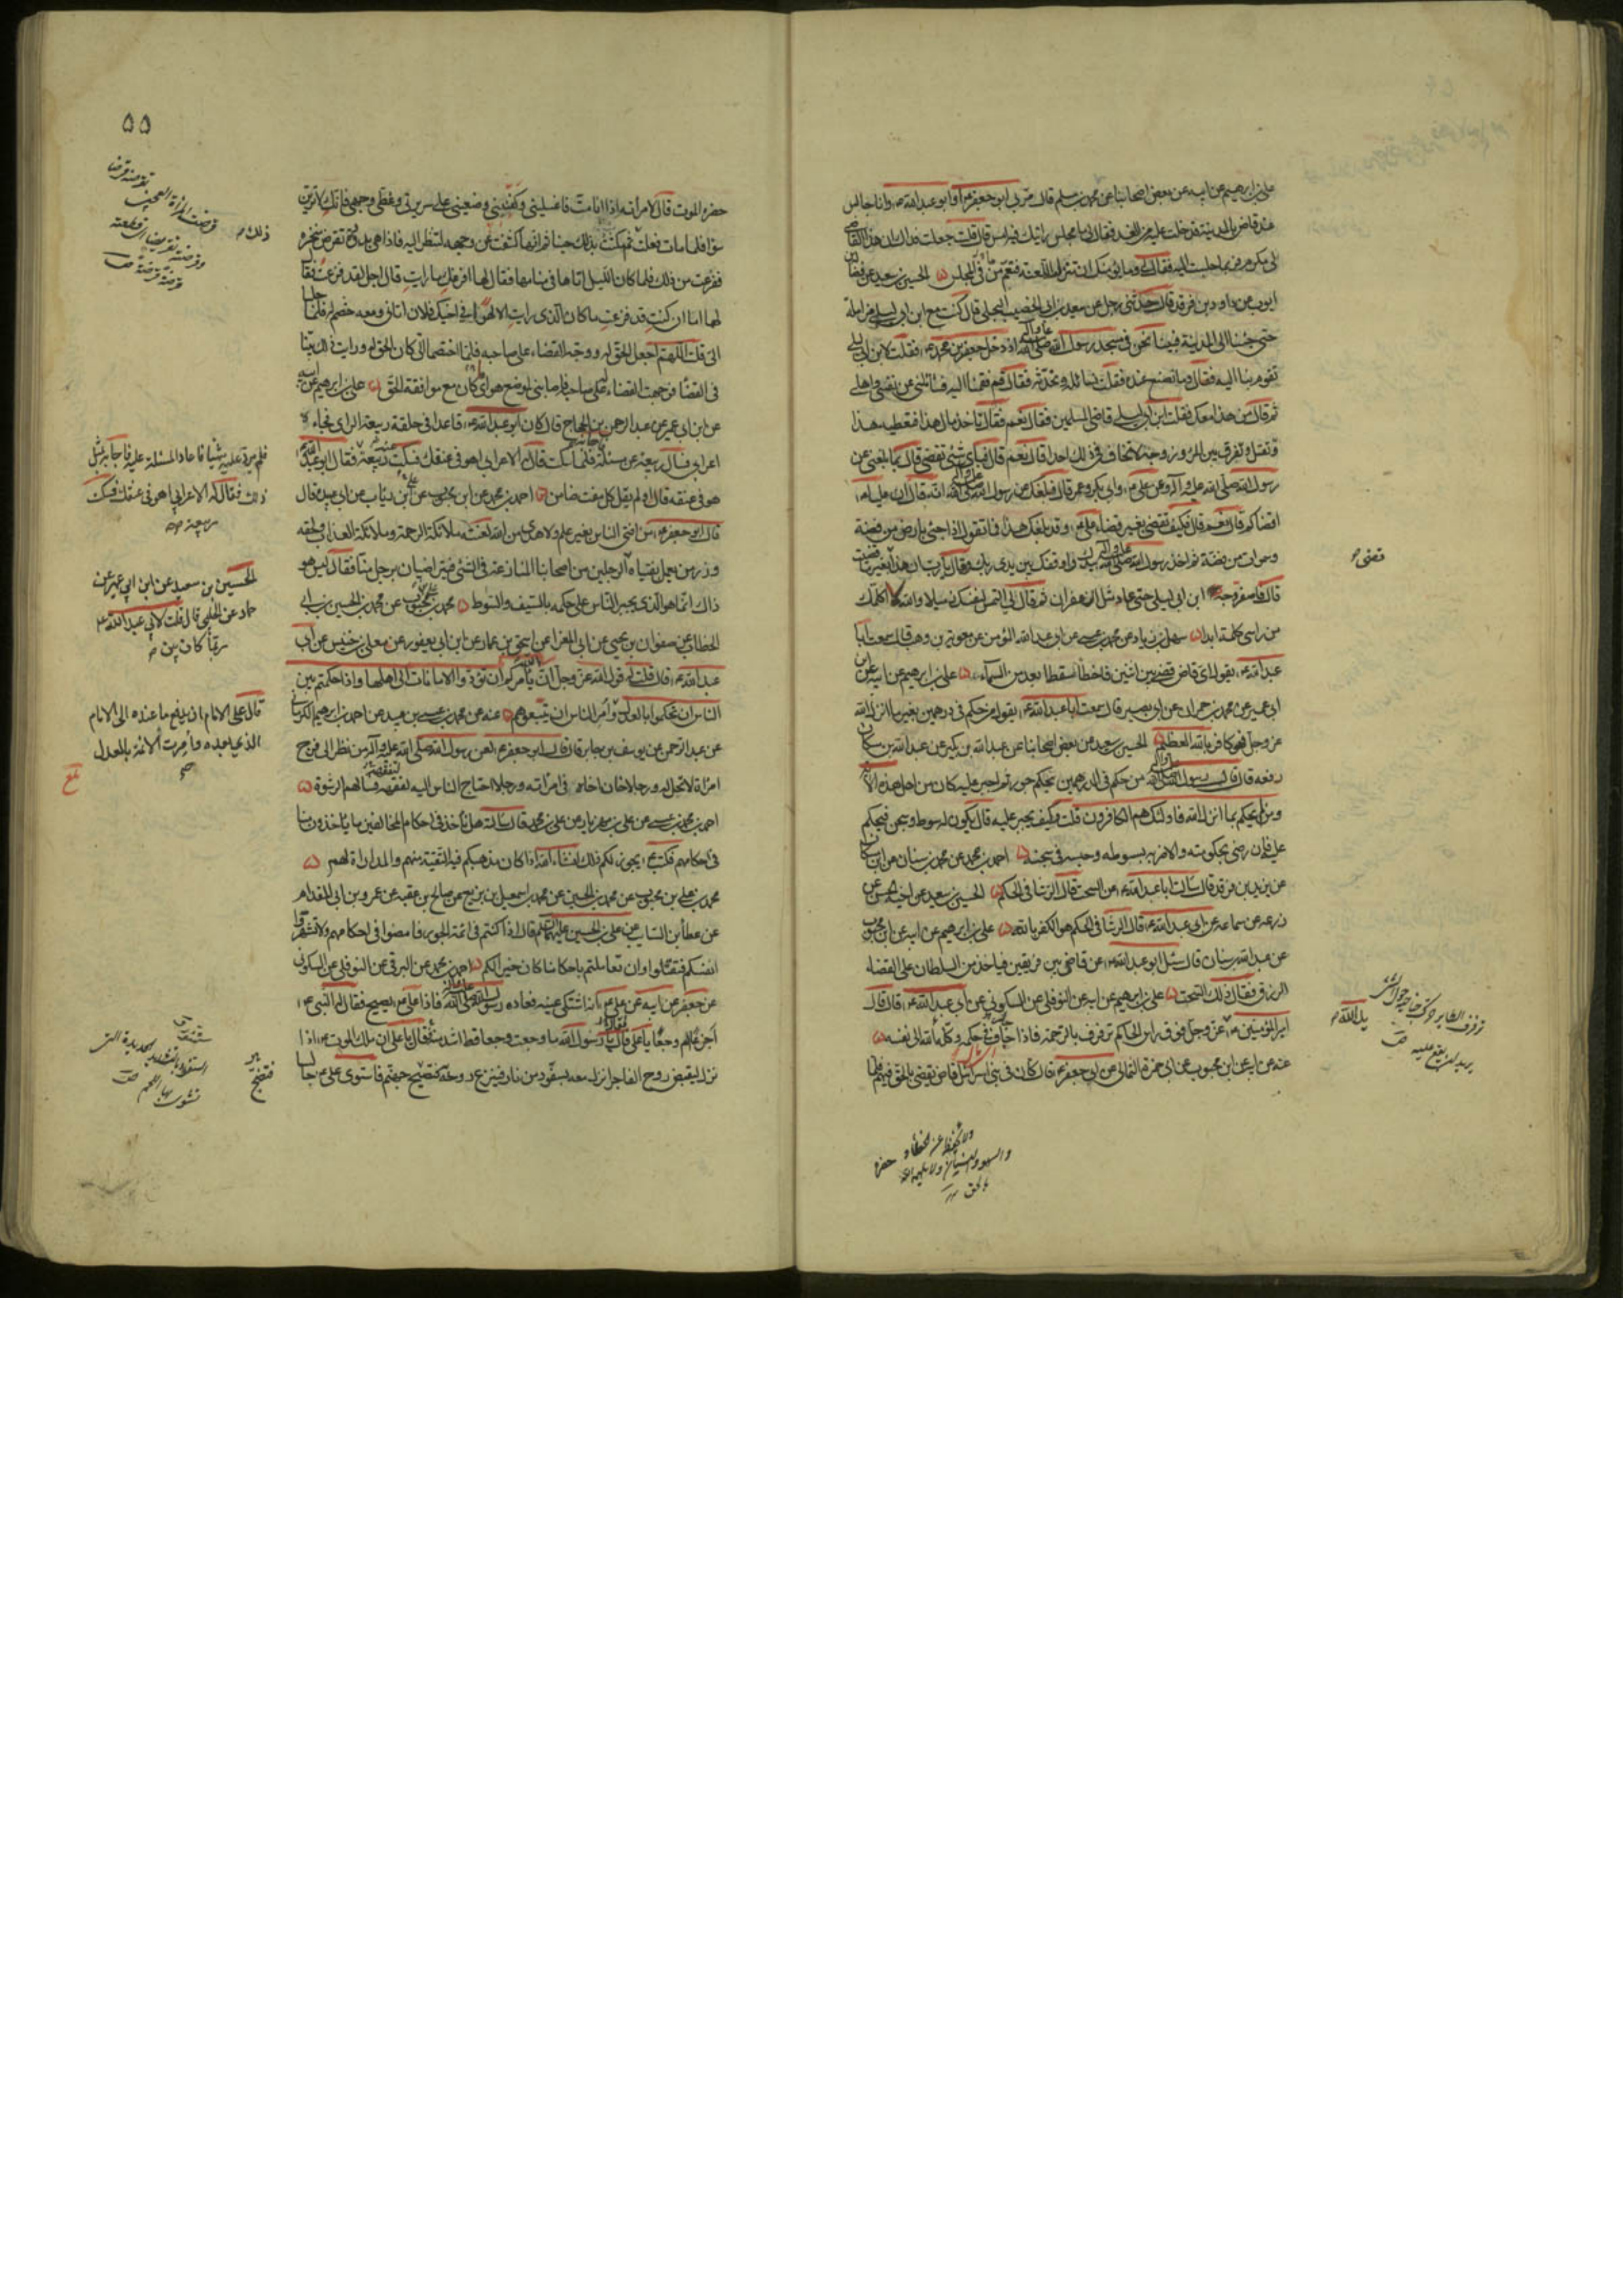 علي بن ابرهيم عن ابيه عن بعض اصحابنا عن محمد بن مسلم قال مر بي ابو جعفر ع او ابو عبد الله ع وانا جالس
عند قاض بالمدينة فدخلت عليه من الغد فقال لي ما مجلس رايتك فيه امس قال قلت جعلت فداك ان هذا القاضي
لي مكرم فربما جلست اليه فقال لي وما يؤمنك ان تنزل اللعنة فتعم من في المجلس الحسين بن سعيد عن فضالة بن
ايوب عن داود بن فرقد قال حدثني رجل عن سعيد بن ابي الخضيب البجلي قال كنت مع ابن ابي ليلى مزامله
حتى جئنا الى المدينة فبينا نحن في مسجد رسول الله صلى الله عليه وآله اذ دخل جعفر بن محمد ع فقلت لابن ابي ليلى
تقوم بنا اليه فقال وما نصنع عنده فقلت نسائله ونحدثه فقال قم فقمنا اليه فسائلني عن نفسي واهلي
ثم قال من هذا معك فقلت ابن ابي ليلى قاضي المسلمين فقال نعم فقال تاخذ مال هذا فتعطيه هذا
وتقتل وتفرق بين المرء وزوجه لا تخاف في ذلك احدا قال نعم قال فباي شئ تقضي قال بما بلغني عن
رسول الله صلى الله عليه وآله وعن علي ع وابي بكر وعمر قال فبلغك عن رسول الله صلى الله عليه وآله انه قال ان عليا ع
اقضاكم قال نعم قال فكيف تقضي بغير قضاء علي ع وقد بلغك هذا فما تقول اذا جئ بارض من فضة
وسموات من فضة ثم اخذ رسول الله صلى الله عليه وآله بيدك واوقفك بين يدي ربك وقال يا رب ان هذا قضى بغير ما قضيت
قال فاصفر وجه ابن ابي ليلى حتى عاد مثل الزعفران ثم قال لي التمس لنفسك زميلا والله لا اكلمك
من راسي كلمة ابدا سهل بن زياد عن محمد بن عيسى عن ابي عبد الله المؤمن عن معوية بن وهب قال سمعت ابا
عبد الله ع يقول اي قاض قضى بين اثنين فاخطأ سقط ابعد من السماء علي بن ابرهيم عن ابيه عن ابن
ابي عمير عن محمد بن حمران عن ابي بصير قال سمعت ابا عبد الله ع يقول من حكم في درهمين بغير ما انزل الله
عز وجل فهو كافر بالله العظيم الحسين بن سعيد عن بعض اصحابنا عن عبد الله بن بكير عن عبد الله بن مسكان
رفعه قال قال رسول الله صلى الله عليه وآله من حكم في الدرهمين بحكم جور ثم اجبر عليه كان من اهل هذه الاية
ومن لم يحكم بما انزل الله فاولئك هم الكافرون قلت وكيف يجبر عليه قال يكون له سوط وسجن فيحكم
عليه فان رضي بحكومته والا ضربه بسوطه وحبسه في سجنه احمد بن محمد عن محمد بن سنان عن ابن مسكان
عن يزيد بن فرقد قال سألت ابا عبد الله ع عن السحت قال الرشا في الحكم الحسين بن سعيد عن اخيه الحسن عن
زرعة عن سماعة عن ابي عبد الله ع قال الرشا في الحكم هو الكفر بالله علي بن ابرهيم عن ابيه عن ابن محبوب
عن عبد الله بن سنان قال سئل ابو عبد الله ع عن قاض بين فريقين فياخذ من السلطان على القضاء
الرزق فقال ذلك السحت علي بن ابرهيم عن ابيه عن النوفلي عن السكوني عن ابي عبد الله ع قال قال
امير المؤمنين ع يد الله عز وجل فوق راس الحاكم ترفرف بالرحمة فاذا حاف في حكمه وكله الله الى نفسه
عنه عن ابيه عن ابن محبوب عن ابي حمزة الثمالي عن ابي جعفر ع قال كان في بني اسرائيل قاض يقضي بالحق فيهم فلما
قضى
ترفرف الطاير
يد الله
يريد ان يقع عليه
حضره
٥٥
حضره الموت قال لامرأته اذا انا مت فاغسليني وكفنيني وضعيني على سريري وغطي وجهي فانك لا ترين
سوءا فلما مات فعلت ثم مكثت بذلك حينا ثم انها كشفت عن وجهه لتنظر اليه فاذا هي بدودة تقرض منخره
ففزعت من ذلك فلما كان الليل اتاها في منامها فقال لها افزعك ما رايت قال اجل لقد فزعت فقال
لها اما ان كنت قد فزعت ما كان الذي رايت الا لهوى في اخيك فلان اتاني ومعه خصم له فلما جلسا
الي قلت اللهم اجعل الحق له ووجه القضاء على صاحبه فلما اختصما الي كان الحق له ورايت ذلك بينا
في القضا فوجهت القضاء له على صاحبه فاصابني لموضع هواي كان مع موافقة الحق علي بن ابرهيم عن ابيه
عن ابن ابي عمير عن عبد الرحمن بن الحجاج قال كان ابو عبد الله ع قاعدا في حلقة ربيعة الراي فجاء
اعرابي فسال ربيعة عن مسئلة فلما سكت قال له الاعرابي اهو في عنقك فسكت ربيعة فقال ابو عبد الله ع
هو في عنقه قال او لم يقل كل مفت ضامن احمد بن محمد عن ابن محبوب عن علي بن رئاب عن ابي عبيدة قال
قال ابو جعفر ع من افتى الناس بغير علم ولا هدى من الله لعنته ملائكة الرحمة وملائكة العذاب ولحقه
وزر من يعمل بفتياه الرجلين من اصحابنا المنازعة في الشئ فيتراضيان برجل منا فقال ليس هو
ذاك انما هو الذي يجبر الناس على حكمه بالسيف والسوط محمد بن علي بن محبوب عن محمد بن الحسين بن ابي
الخطاب عن صفوان بن يحيى عن ابي المغرا عن اسحق بن عمار عن ابن ابي يعفور عن معلى بن خنيس عن ابي
عبد الله ع قال قلت له قول الله عز وجل ان الله يأمركم ان تؤدوا الامانات الى اهلها واذا حكمتم بين
الناس ان تحكموا بالعدل وأمر الناس ان يتبعوهم عنه عن محمد بن عيسى بن عبيد عن احمد بن ابرهيم الكرماني
عن عبد الرحمن عن يوسف بن جابر قال قال ابو جعفر ع لعن رسول الله صلى الله عليه وآله من نظر الى فرج
امرأة لا تحل له ورجلا خان اخاه في امرأته ورجلا احتاج الناس اليه لفقهه فسألهم الرشوة
احمد بن محمد بن عيسى عن علي بن مهزيار عن علي بن محمد قال سألته هل نأخذ في احكام المخالفين ما ياخذون منا
في احكامهم فكتب ع يجوز لكم ذلك انشاء الله اذا كان مذهبكم فيه التقية منهم والمداراة لهم
محمد بن علي بن محبوب عن محمد بن الحسين عن محمد بن اسمعيل بن بزيع عن صالح بن عقبة عن عمرو بن ابي المقدام
عن عطا بن السايب عن علي بن الحسين عليهما السلم قال اذا كنتم في ائمة الجور فامضوا في احكامهم ولا تشهروا
انفسكم فتقتلوا وان تعاملتم باحكامنا كان خيرا لكم احمد بن محمد عن البرقي عن النوفلي عن السكوني
عن جعفر عن ابيه عن علي ع انه اشتكى عينه فعاده رسول الله صلى الله عليه وآله فاذا علي ع يصيح فقال له النبي ع
أجزعا ام وجعا يا علي قال يا رسول الله ما وجعت وجعا قط اشد منه فقال يا علي ان ملك الموت اذا
نزل ليقبض روح الفاجر انزل معه سفود من نار فينزع روحه فتصيح جهنم فاستوى علي ع جالسا
ذلك
فلم يرد عليه شيئا فاعاد المسئلة عليه فاجابه بمثل
ذلك فقال له الاعرابي اهو في عنقك فسكت
ربيعة
الحسين بن سعيد عن ابن ابي عمير عن
حماد عن الحلبي قال قلت لابي عبد الله ع
ربما كان بين
قال على الامام ان يدفع ما عنده الى الامام
الذي بعده وأمرت الائمة بالعدل
السفود بالتشديد الحديدة التي
تشوى بها اللحم